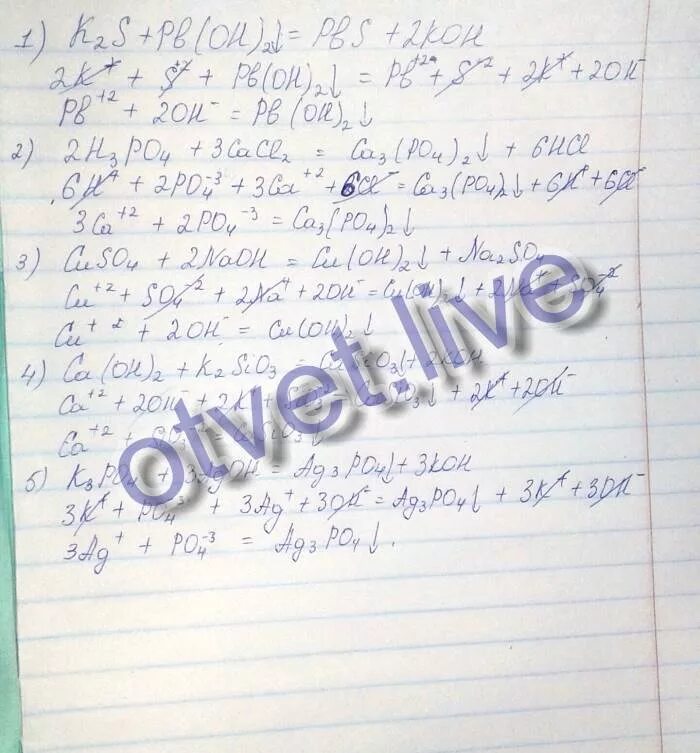 1) K₂S + Pb(OH)₂↓ = PbS + 2KOH
2K⁺ + S⁻² + Pb(OH)₂↓ = Pb⁺² + S⁻² + 2K⁺ + 2OH⁻
Pb⁺² + 2OH⁻ = Pb(OH)₂↓
2) 2H₃PO₄ + 3CaCl₂ = Ca₃(PO₄)₂↓ + 6HCl
6H⁺ + 2PO₄⁻³ + 3Ca⁺² + 6Cl⁻ = Ca₃(PO₄)₂↓ + 6H⁺ + 6Cl⁻
3Ca⁺² + 2PO₄⁻³ = Ca₃(PO₄)₂↓
3) CuSO₄ + 2NaOH = Cu(OH)₂↓ + Na₂SO₄
Cu⁺² + SO₄⁻² + 2Na⁺ + 2OH⁻ = Cu(OH)₂↓ + 2Na⁺ + SO₄⁻²
Cu⁺² + 2OH⁻ = Cu(OH)₂↓
4) Ca(OH)₂ + K₂SiO₃ = CaSiO₃↓ + 2KOH
Ca⁺² + 2OH⁻ + 2K⁺ + = ↓ + 2K⁺ + 2OH⁻
Ca⁺² + = ↓
5) K₃PO₄ + 3AgOH = Ag₃PO₄↓ + 3KOH
3K⁺ + PO₄⁻³ + 3Ag⁺ + 3OH⁻ = Ag₃PO₄↓ + 3K⁺ + 3OH⁻
3Ag⁺ + PO₄⁻³ = Ag₃PO₄↓.
otvet.live